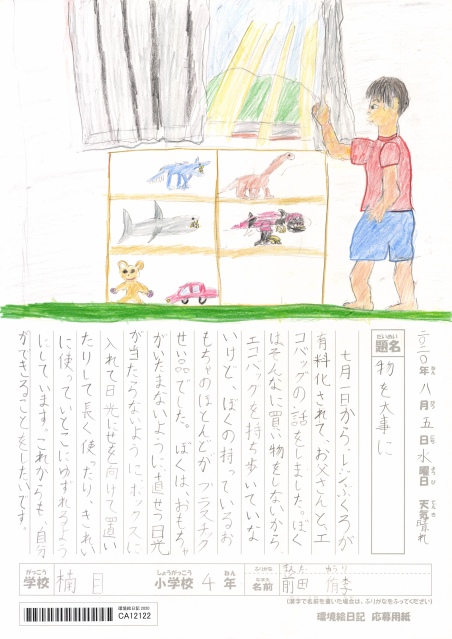 二〇二〇年 八月 五日 水曜日 天気 晴れ
題名 物を大事に
七月一日から、レジぶくろが
有料化されて、お父さんと、エ
コバッグの話をしました。ぼく
はそんなに買い物をしないから
エコバッグを持ち歩いていな
いけど、ぼくの持っているお
もちゃのほとんどがプラスチク
せい品でした。ぼくは、おもちゃ
がいたまないように、直せつ日光
が当たらないように、ボックスに
入れて日光にせを向けて置い
たりして長く使ったり、きれい
に使っていとこにゆずれるよう
にしています。これからも、自分
ができることをしたいです。
がっこう しょうがっこう ねん ふりがな
学校 楠目 小学校 4年 名前 前田
(漢字で名前を書いた場合は、ふりがなをふってください)
環境絵日記 2020
CA12122
環境絵日記 応募用紙